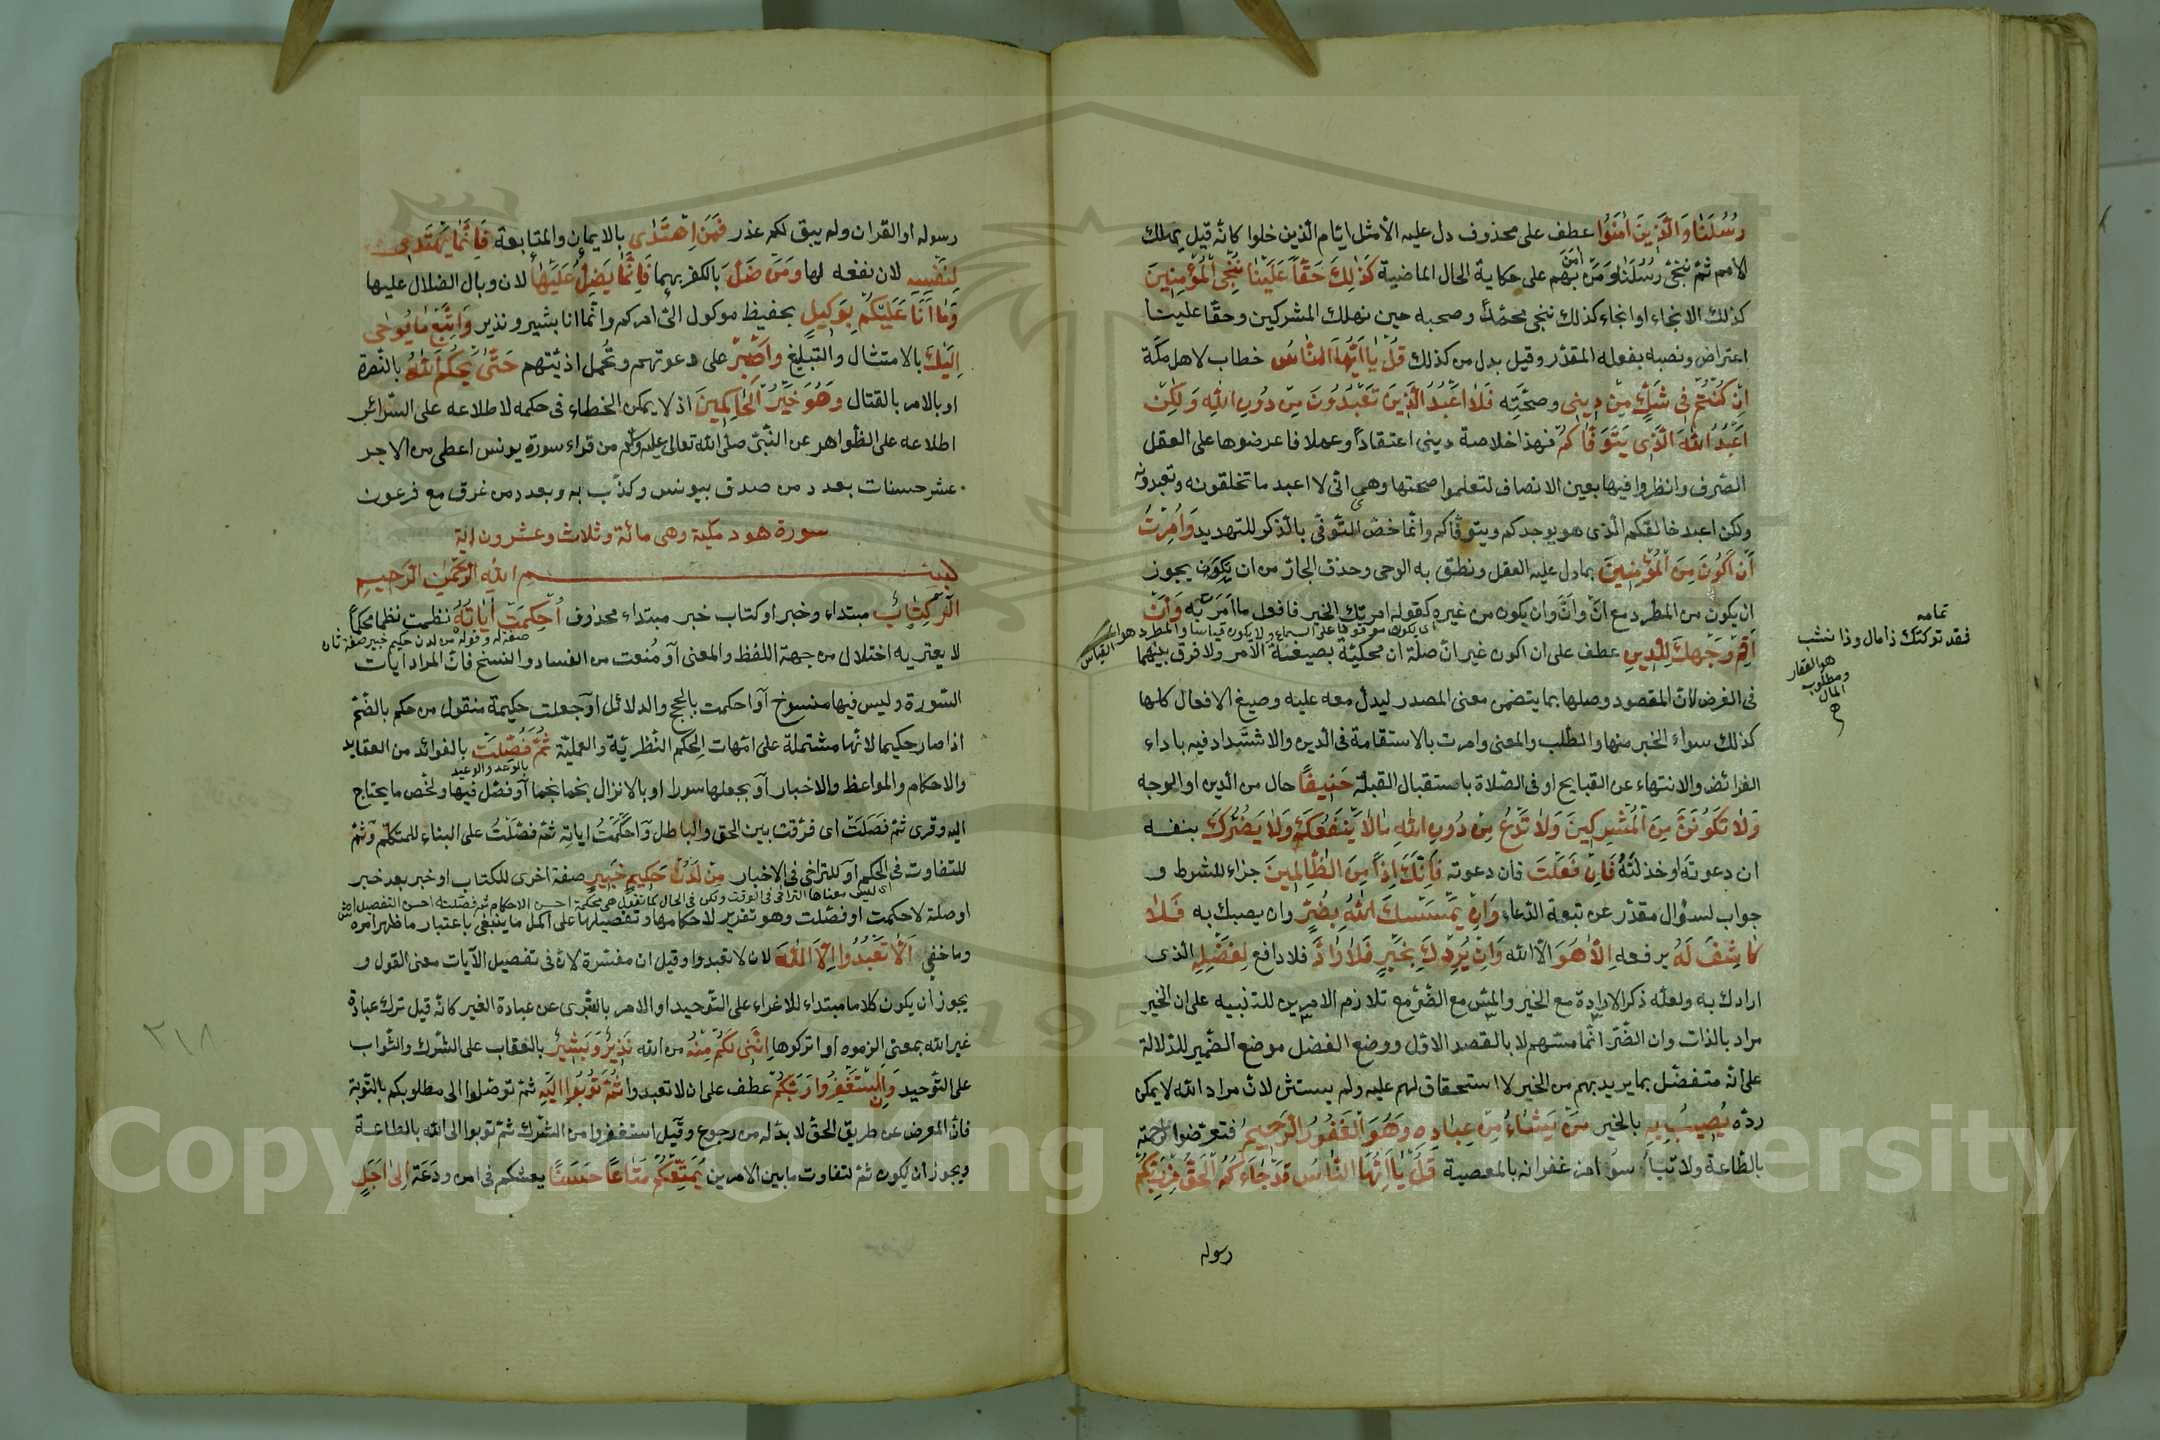 رُسُلَنَا وَالَّذِينَ اٰمَنُوا عطف على محذوف دل عليه الا مثل ايام الذين خلوا كانه قيل نهلك
الامم ثم ننجى رسلنا ومن آمن بهم على حكاية الحال الماضية كَذٰلِكَ حَقًّا عَلَيْنَا نُنْجِى الْمُؤْمِنِينَ
كذلك الانجاء او انجاء كذلك ننجى محمدًا وصحبه حين نهلك المشركين وحقًا علينا
اعتراض ونصبه بفعله المقدر وقيل بدل من كذلك قُلْ يَا اَيُّهَا النَّاسُ خطاب لاهل مكة
اِنْ كُنْتُمْ فِى شَكٍّ مِنْ دِينِى وصحته فَلَا اَعْبُدُ الَّذِينَ تَعْبُدُونَ مِنْ دُونِ اللّٰهِ وَلٰكِنْ
اَعْبُدُ اللّٰهَ الَّذِى يَتَوَفَّاكُمْ فهذا خلاصة دينى اعتقادًا وعملا فاعرضوها على العقل
الصرف وانظروا فيها بعين الانصاف لتعلموا صحتها وهى انى لا اعبد ما تخلقونه وتعبدونه
ولكن اعبد خالقكم الذى هو يوجدكم ويتوفاكم وانما خص التوفى بالذكر للتهديد وَاُمِرْتُ
اَنْ اَكُونَ مِنَ الْمُؤْمِنِينَ بما دل عليه العقل ونطق به الوحى وحذف الجار من ان يكون يجوز
ان يكون من المطرد مع انّ وانْ وان يكون من غيره كقوله امرتك الخير فافعل ما امرت به وَاَنْ
اى يكون موقوفا على السماع ولا يكون قياسا والمطرد هوا القياس
اَقِمْ وَجْهَكَ لِلدِّينِ عطف على ان اكون غير ان صلة ان محكية بصيغة الامر ولا فرق بينهما
فى الغرض لان المقصود وصلها بما يتضمن معنى المصدر ليدل معه عليه وصيغ الافعال كلها
كذلك سواء الخبر منها والطلب والمعنى وامرت بالاستقامة فى الدين والاشتداد فيه باداء
الفرائض والانتهاء عن القبايح او فى الصلاة باستقبال القبلة حَنِيفًا حال من الدين او الوجه
وَلَا تَكُونَنَّ مِنَ الْمُشْرِكِينَ وَلَا تَدْعُ مِنْ دُونِ اللّٰهِ مَا لَا يَنْفَعُكَ وَلَا يَضُرُّكَ بنفسه
ان دعوته او خذلته فَاِنْ فَعَلْتَ فان دعوته فَاِنَّكَ اِذًا مِنَ الظَّالِمِينَ جزاء للشرط و
جواب لسؤال مقدر عن تبعة الدعاء وَاِنْ يَمْسَسْكَ اللّٰهُ بِضُرٍّ وان يصبك به فَلَا
كَاشِفَ لَهُ يرفعه اِلَّا هُوَ الا الله وَاِنْ يُرِدْكَ بِخَيْرٍ فَلَا رَادَّ فلا دافع لِفَضْلِهِ الذى
ارادك به ولعله ذكر الارادة مع الخير والمس مع الضر مع تلازم الامرين للتنبيه على ان الخير
مراد بالذات وان الضر انما مسهم لا بالقصد الاول ووضع الفضل موضع الضمير للدلالة
على انه متفضل بما يريد بهم من الخير لا استحقاق لهم عليه ولم يستثن لان مراد الله لا يمكن
رده يُصِيبُ بِهِ بالخير مَنْ يَشَاءُ مِنْ عِبَادِهِ وَهُوَ الْغَفُورُ الرَّحِيمُ فتعرضوا لرحمته
بالطاعة ولا تيأسوا من غفرانه بالمعصية قُلْ يَا اَيُّهَا النَّاسُ قَدْ جَاءَكُمُ الْحَقُّ مِنْ رَبِّكُمْ
رسوله
تمامه
فقد تركتك ذا مال وذا نشب
هو العقار
ومطلوب
المال
رسوله او القران ولم يبق لكم عذر فَمَنِ اهْتَدٰى بالايمان والمتابعة فَاِنَّمَا يَهْتَدِى
لِنَفْسِهِ لان نفعه لها وَمَنْ ضَلَّ بالكفر بهما فَاِنَّمَا يَضِلُّ عَلَيْهَا لان وبال الضلال عليها
وَمَا اَنَا عَلَيْكُمْ بِوَكِيلٍ بحفيظ موكول الىّ امركم وانما انا بشير ونذير وَاتَّبِعْ مَا يُوحٰى
اِلَيْكَ بالامتثال والتبليغ وَاصْبِرْ على دعوتهم وتحمل اذيتهم حَتّٰى يَحْكُمَ اللّٰهُ بالنصرة
او بالامر بالقتال وَهُوَ خَيْرُ الْحَاكِمِينَ اذ لا يمكن الخطاء فى حكمه لاطلاعه على السرائر
اطلاعه على الظواهر عن النبى صلى الله تعالى عليه وسلم من قراء سورة يونس اعطى من الاجر
عشر حسنات بعدد من صدق بيونس وكذب به وبعدد من غرق مع فرعون
سورة هود مكية وهى مائة وثلاث وعشرون اية
بسم الله الرحمن الرحيم
الٓرٰ كِتَابٌ مبتداء وخبر او كتاب خبر مبتداء محذوف اُحْكِمَتْ اٰيَاتُهُ نظمت نظما محكمًا
صفة له وقوله من لدن حكيم خبير صفة ثان
لا يعتريه اختلال من جهة اللفظ والمعنى او منعت من الفساد والنسخ فان المراد ايات
السورة وليس فيها منسوخ او احكمت بالحجج والدلائل او جعلت حكيمة منقول من حكم بالضم
اذا صار حكيما لانها مشتملة على امهات الحكم النظرية والعملية ثُمَّ فُصِّلَتْ بالفوائد من العقايد
بالوعد والوعيد
والاحكام والمواعظ والاخبار او بجعلها سورا او بالانزال نجما نجما او فصل فيها ولخص ما يحتاج
اليه وقرى ثم فَصَلَتْ اى فرقت بين الحق والباطل واَحْكَمْتُ اياتِهِ ثم فصّلْتُ على البناء للمتكلم وثم
للتفاوت فى الحكم او للتراخى فى الاخبار مِنْ لَدُنْ حَكِيمٍ خَبِيرٍ صفة اخرى للكتاب او خبر بعد خبر
اى ليس معناها التراخى فى الوقت ولكن فى الحال كما تقول هى محكمة احسن الاحكام ثم مفصلة احسن التفصيل
او صلة لاحكمت او فصلت وهو تقرير لاحكامها وتفصيلها على اكمل ما ينبغى باعتبار ما ظهر امره
وما خفى اَلَّا تَعْبُدُوا اِلَّا اللّٰهَ لان لا تعبدوا وقيل ان مفسرة لان فى تفصيل الآيات معنى القول و
يجوز ان يكون كلاما مبتداء للاغراء على التوحيد او الامر بالتبرى عن عبادة الغير كانه قيل ترك عبادة
غير الله بمعنى الزموه او اتركوها اِنَّنِى لَكُمْ مِنْهُ من الله نَذِيرٌ وَبَشِيرٌ بالعقاب على الشرك والثواب
على التوحيد وَاَنِ اسْتَغْفِرُوا رَبَّكُمْ عطف على ان لا تعبدوا ثُمَّ تُوبُوا اِلَيْهِ ثم توصلوا الى مطلوبكم بالتوبة
فان المعرض عن طريق الحق لا بد له من رجوع وقيل استغفروا من الشرك ثم توبوا الى الله بالطاعة
ويجوز ان يكون ثم لتفاوت ما بين الامرين يُمَتِّعْكُمْ مَتَاعًا حَسَنًا يعشكم فى امن ودعة اِلٰى اَجَلٍ
٢١٨
Copyright © King Saud University
195